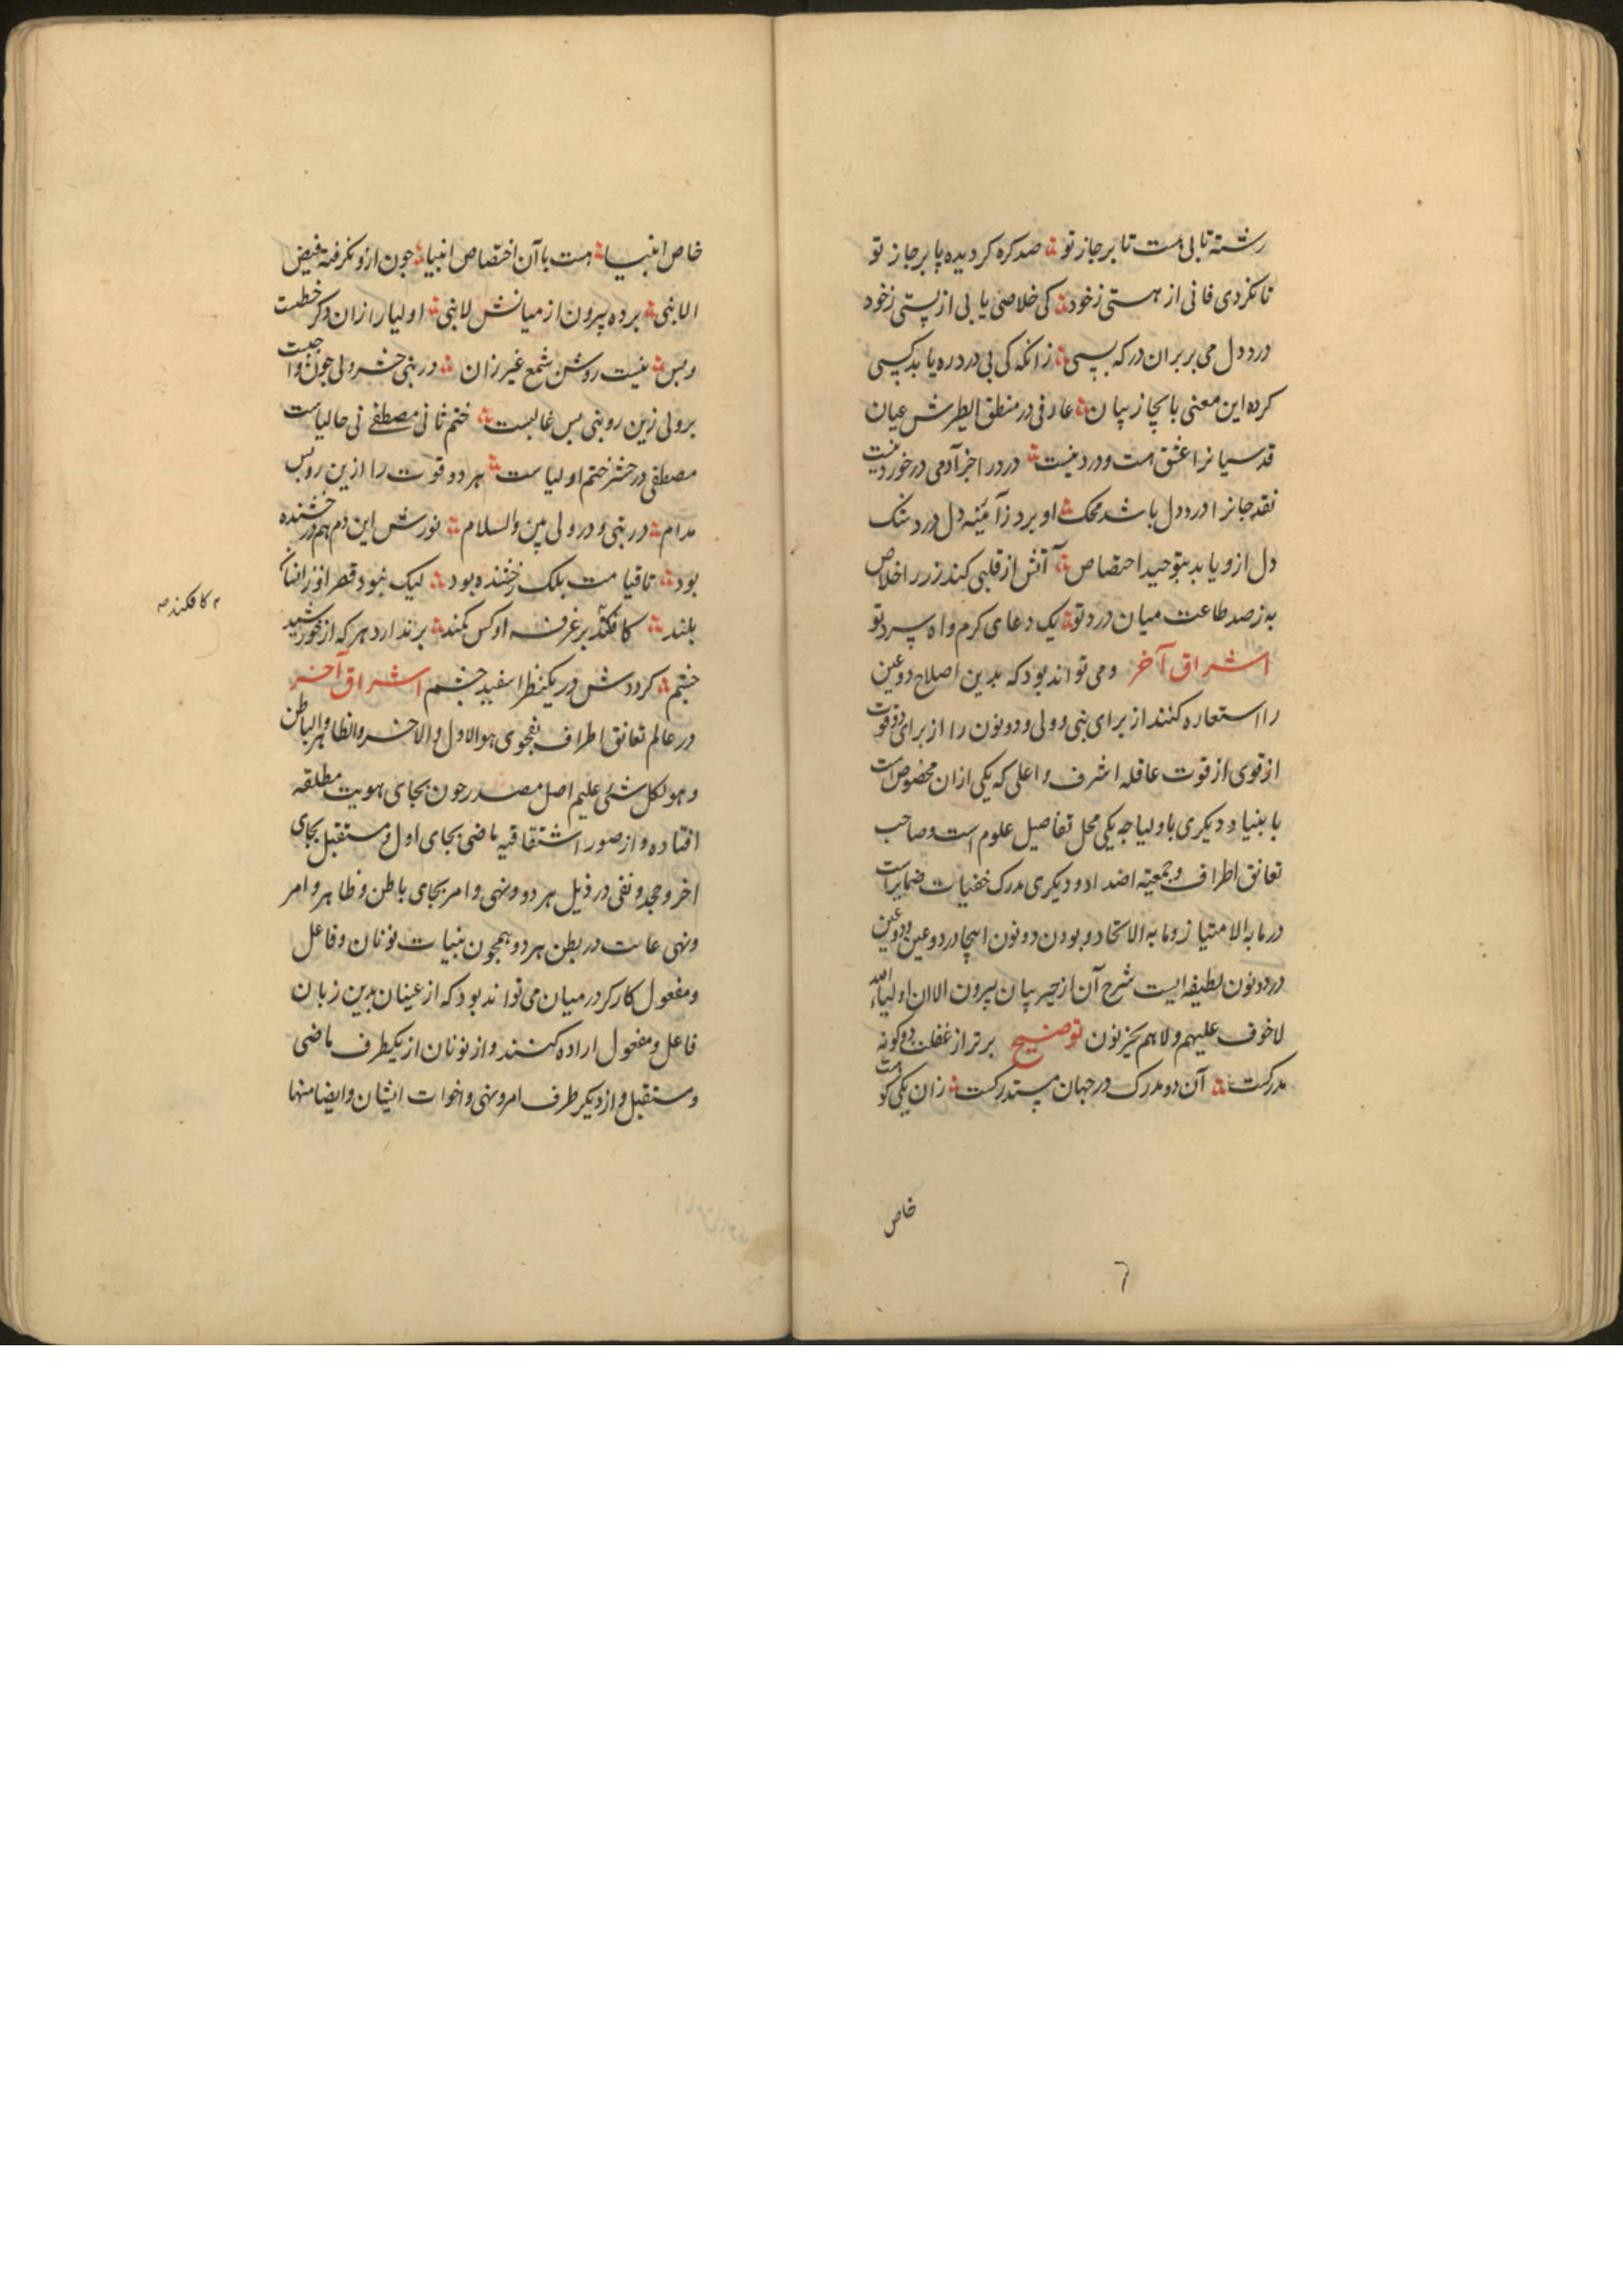 رشته تابی هست تا بر جاز تو ؞ صد کره کردیده پا بر جا ز تو
تا نکردی فانی از هستی ز خود ؞ کی خلاصی یابی از پستی ز خود
درد دل می بر بران درکه بسی ؞ زانکه کی بی درد ره یابد کسی
کرده این معنی بایجاز بیان ؞ عارفی در منطق الطیرش عیان
قدسیانرا عشق هست و درد نیست ؞ درد را جز آدمی درخورد نیست
نقد جانرا درد دل باشد محک ؞ او برد ز آئینه دل درد شک
دل ازو یابد بتوحید اختصاص ؞ آتش از قلبی کند زر را خلاص
به ز صد طاعت میان درد تو ؞ یک دعای کرم و اه سرد تو
اشراق آخر ومی تواند بود که بدین اصلاح دو عین
را استعاره کنند از برای نبی و ولی و دو نون را از برای دو قوت
از قوی از قوت عاقله اشرف و اعلی که یکی ازان مخصوص است
بانبیا و دیکری باولیا چه یکی محل تفاصیل علوم است و صاحب
تعانق اطراف و جمعیة اضداد و دیکری مدرک خفیات ضمایر است
در ما به الامتیاز و ما به الاتحاد و بودن دو نون اینجا در دو عین و دو عین
در دو نون لطیفه ایست شرح آن از حیز بیان بیرون الا ان اولیاء الله
لا خوف علیهم ولا هم یحزنون توضیح برتر از غفلت دو کونه
مدرکست ؞ آن دو مدرک در جهان مستدرکست ؞ زان یکی کو هست
خاص
٦
خاص انبیا ؞ هست با آن اختصاص انبیا ؞ جون ازو نکرفته فیض
الا نبی ؞ برده بیرون از میانش لا نبی ؞ اولیا را زان دکر خطیست
و بس ؞ نیست روشن شمع غیر زان ؞ در نبی حشر ولی جون واجبست
بر ولی زین رو نبی بس غالبست ؞ ختم ثانی مصطفی نی حالیاست
مصطفی در حشر ختم اولیاست ؞ هر دو قوت را ازین رو بس
مدام ؞ در نبی و در ولی بین والسلام ؞ نورش این دم هم درخشنده
بود ؞ تا قیامت بلک رخشنده بود ؞ لیک نبود قصر او زانسان
بلند ؞ کافکند بر غرفه او کس کمند ؞ بر ندارد هر که از خورشید
م کافکند ص
چشم ؞ کرددش در یکنظر اسفید چشم اشراق آخر
در عالم تعانق اطراف بفحوی هو الاول والاخر والظاهر والباطن
وهو لکل شئ علیم اصل مصدر جون بجای هویت مطلقه
افتاده و از صور اشتقاقیه ماضی بجای اول و مستقبل بجای
اخر و جحد و نفی در ذیل هر دو و نهی و امر بجای باطن و ظاهر و امر
و نهی غائب در بطن هر دو همجون بنیات نونان و فاعل
و مفعول کارکر در میان می تواند بود که از عینان بدین زبان
فاعل و مفعول اراده کنند و از نونان از یکطرف ماضی
و مستقبل و از دیکر طرف امر و نهی و اخوات ایشان و ایضا منها